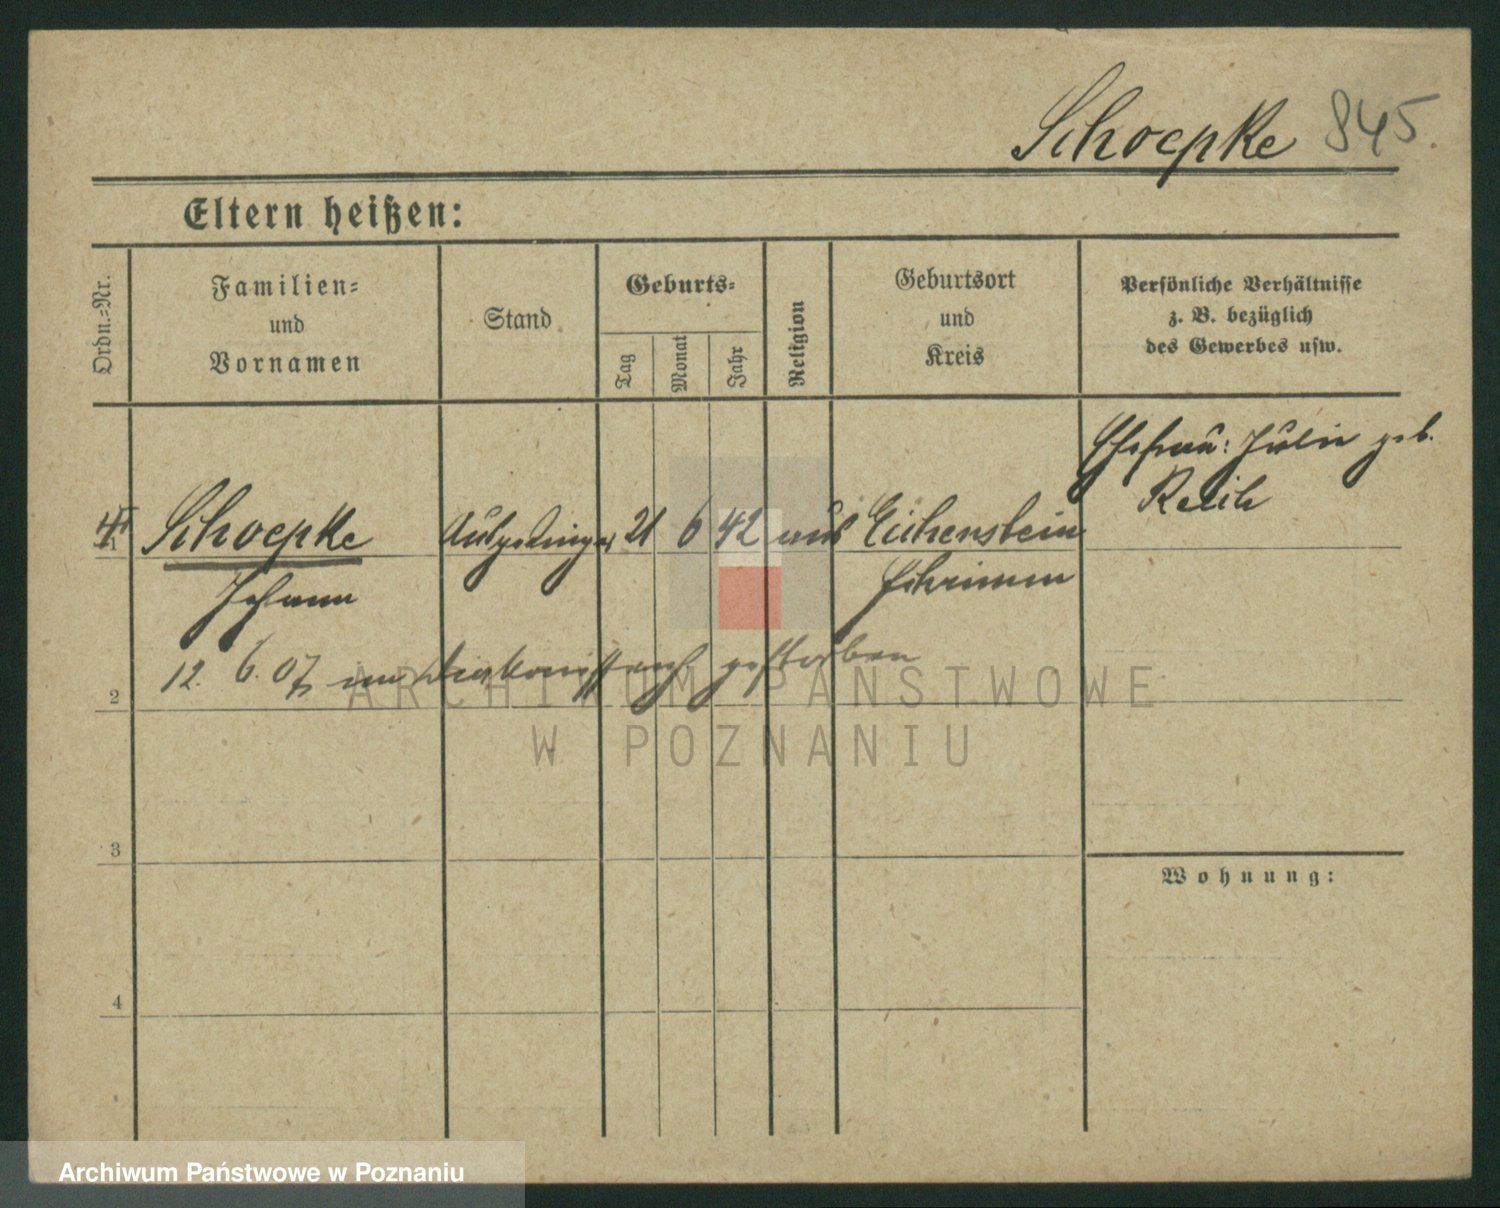 Schoepke 845.
Eltern heißen:
Ordn.-Nr.
Familien-
und
Vornamen
Stand
Geburts-
Tag
Monat
Jahr
Religion
Geburtsort
und
Kreis
Persönliche Verhältnisse
z. B. bezüglich
des Gewerbes usw.
Ehefrau: Julie geb.
1 Schoepke Ausgedinger 21 6 42 Eichenstein
Johann Schrimm
12. 6. 07 im gestorben
2
3
Wohnung:
4
ARCHIWUM PAŃSTWOWE
W POZNANIU
Archiwum Państwowe w Poznaniu